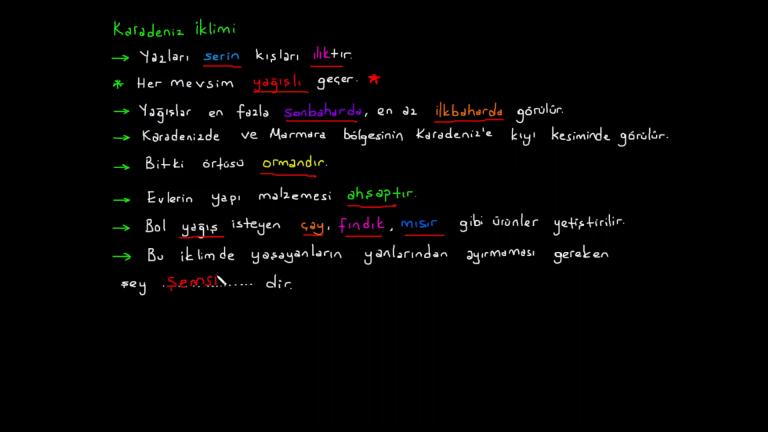 Karadeniz İklimi
→ Yazları serin kışları ılıktır.
* Her mevsim yağışlı geçer. *
→ Yağışlar en fazla sonbaharda, en az ilkbaharda görülür.
→ Karadenizde ve Marmara bölgesinin Karadeniz'e kıyı kesiminde görülür.
→ Bitki örtüsü ormandır.
→ Evlerin yapı malzemesi ahşaptır.
→ Bol yağış isteyen çay, fındık, mısır gibi ürünler yetiştirilir.
→ Bu iklimde yaşayanların yanlarından ayırmaması gereken
şey ..Şemsi...... dir.